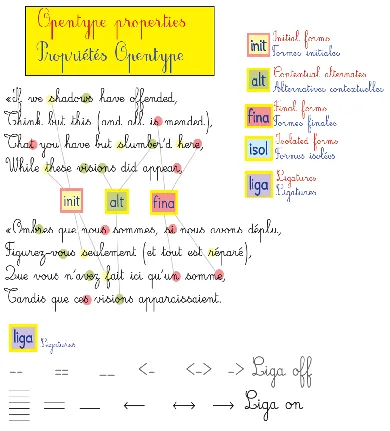 Opentype properties
Propriétés Opentype
init Initial forms
Formes initiales
alt Contextual alternates
Alternatives contextuelles
fina Final forms
Formes finales
isol Isolated forms
Formes isolées
liga Ligatures
Ligatures
«If we shadows have offended,
Think but this (and all is mended),
That you have but slumber'd here,
While these visions did appear,
init alt fina
«Ombres que nous sommes, si nous avons déplu,
Figurez-vous seulement (et tout est réparé),
Que vous n'avez fait ici qu'un somme,
Tandis que ces visions apparaissaient.
liga Ligatures
-- == __ <- <-> -> Liga off
← ↔ → Liga on